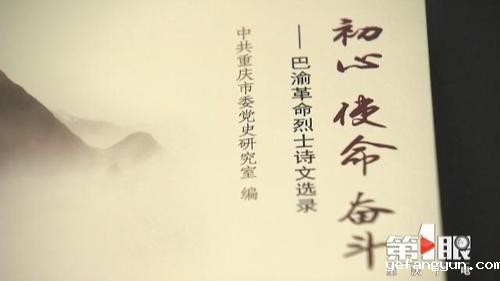 初心 使命 奋斗
——巴渝革命烈士诗文选录
中共重庆市委党史研究室 编
第1眼
yefangyun.com